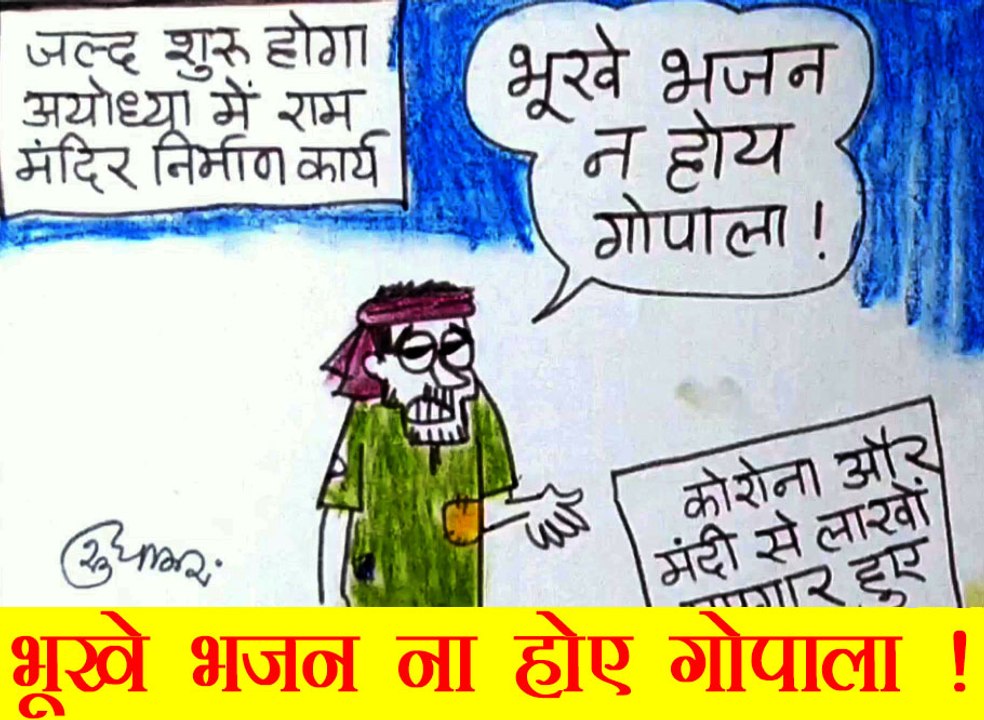 जल्द शुरू होगा
अयोध्या में राम
मंदिर निर्माण कार्य
भूखे भजन
न होय
गोपाला !
कोरोना और
मंदी से लाखों
हुए
भूखे भजन ना होए गोपाला !